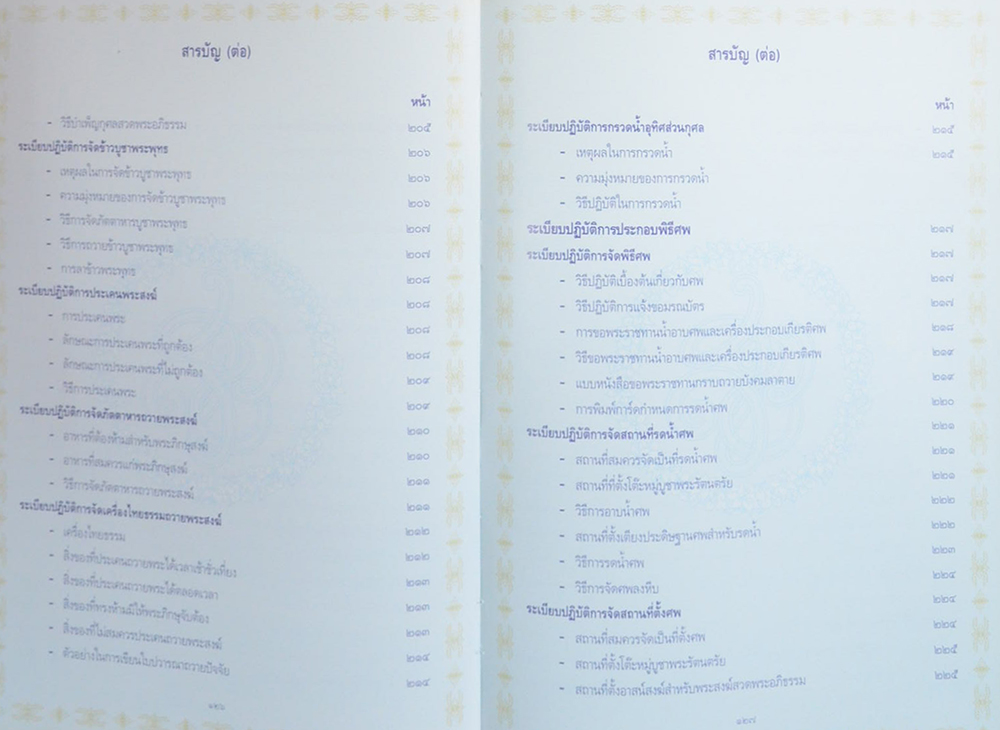 สารบัญ (ต่อ)
หน้า
- วิธีบำเพ็ญกุศลสวดพระอภิธรรม ๒๐๕
ระเบียบปฏิบัติการจัดข้าวบูชาพระพุทธ ๒๐๖
- เหตุผลในการจัดข้าวบูชาพระพุทธ ๒๐๖
- ความมุ่งหมายของการจัดข้าวบูชาพระพุทธ ๒๐๖
- วิธีการจัดภัตตาหารบูชาพระพุทธ ๒๐๗
- วิธีการถวายข้าวบูชาพระพุทธ ๒๐๗
- การลาข้าวพระพุทธ ๒๐๘
ระเบียบปฏิบัติการประเคนพระสงฆ์ ๒๐๘
- การประเคนพระ ๒๐๘
- ลักษณะการประเคนพระที่ถูกต้อง ๒๐๘
- ลักษณะการประเคนพระที่ไม่ถูกต้อง ๒๐๙
- วิธีการประเคนพระ ๒๐๙
ระเบียบปฏิบัติการจัดภัตตาหารถวายพระสงฆ์ ๒๑๐
- อาหารที่ต้องห้ามสำหรับพระภิกษุสงฆ์ ๒๑๐
- อาหารที่สมควรแก่พระภิกษุสงฆ์ ๒๑๑
- วิธีการจัดภัตตาหารถวายพระสงฆ์ ๒๑๑
ระเบียบปฏิบัติการจัดเครื่องไทยธรรมถวายพระสงฆ์ ๒๑๒
- เครื่องไทยธรรม ๒๑๒
- สิ่งของที่ประเคนถวายพระได้เวลาเช้าชั่วเที่ยง ๒๑๓
- สิ่งของที่ประเคนถวายพระได้ตลอดเวลา ๒๑๓
- สิ่งของที่ทรงห้ามมิให้พระภิกษุจับต้อง ๒๑๓
- สิ่งของที่ไม่สมควรประเคนถวายพระสงฆ์ ๒๑๔
- ตัวอย่างในการเขียนใบปวารณาถวายปัจจัย ๒๑๔
๑๒๖
สารบัญ (ต่อ)
หน้า
ระเบียบปฏิบัติการกรวดน้ำอุทิศส่วนกุศล ๒๑๕
- เหตุผลในการกรวดน้ำ ๒๑๕
- ความมุ่งหมายของการกรวดน้ำ
- วิธีปฏิบัติในการกรวดน้ำ
ระเบียบปฏิบัติการประกอบพิธีศพ ๒๑๗
ระเบียบปฏิบัติการจัดพิธีศพ ๒๑๗
- วิธีปฏิบัติเบื้องต้นเกี่ยวกับศพ ๒๑๗
- วิธีปฏิบัติการแจ้งขอมรณบัตร ๒๑๗
- การขอพระราชทานน้ำอาบศพและเครื่องประกอบเกียรติศพ ๒๑๘
- วิธีขอพระราชทานน้ำอาบศพและเครื่องประกอบเกียรติศพ ๒๑๙
- แบบหนังสือขอพระราชทานกราบถวายบังคมลาตาย ๒๑๙
- การพิมพ์การ์ดกำหนดการรดน้ำศพ ๒๒๐
ระเบียบปฏิบัติการจัดสถานที่รดน้ำศพ ๒๒๑
- สถานที่สมควรจัดเป็นที่รดน้ำศพ ๒๒๑
- สถานที่ที่ตั้งโต๊ะหมู่บูชาพระรัตนตรัย ๒๒๑
- วิธีการอาบน้ำศพ ๒๒๒
- สถานที่ตั้งเตียงประดิษฐานศพสำหรับรดน้ำ ๒๒๒
- วิธีการรดน้ำศพ ๒๒๓
- วิธีการจัดศพลงหีบ ๒๒๔
ระเบียบปฏิบัติการจัดสถานที่ตั้งศพ ๒๒๔
- สถานที่สมควรจัดเป็นที่ตั้งศพ ๒๒๔
- สถานที่ตั้งโต๊ะหมู่บูชาพระรัตนตรัย ๒๒๕
- สถานที่ตั้งอาสน์สงฆ์สำหรับพระสงฆ์สวดพระอภิธรรม ๒๒๕
๑๒๗